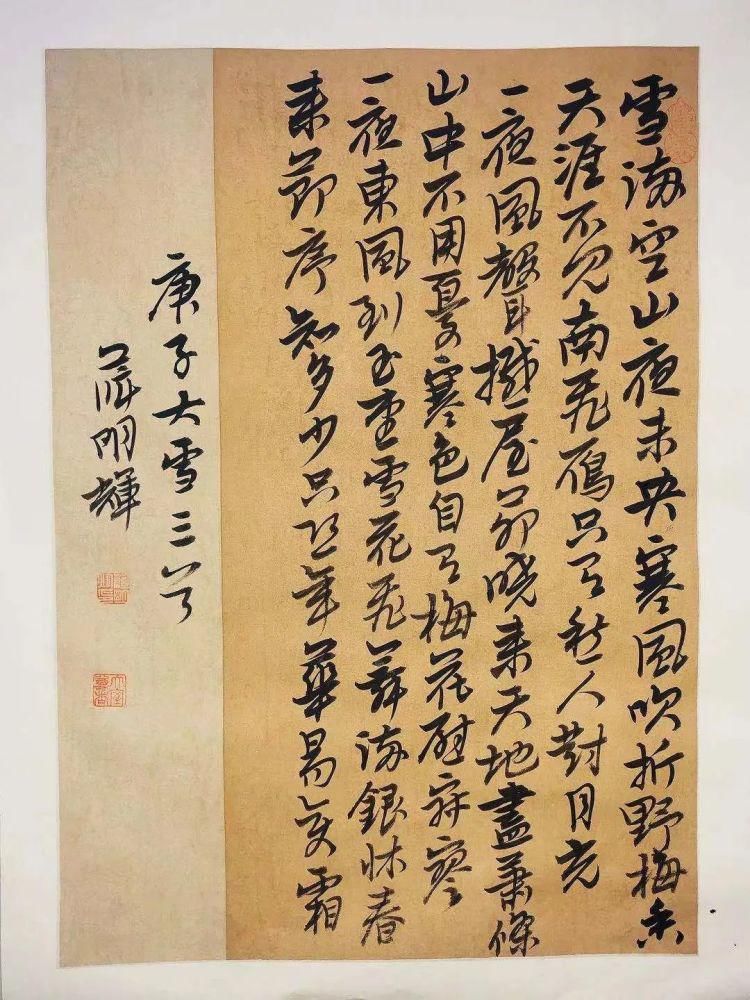 雪滿空山夜未央寒風吹折野梅香
天涯不見南飛雁只有愁人對月光
一夜風聲撼屋茆曉來天地盡蕭條
山中不用憂寒色自有梅花慰寂寥
一夜東風到玉堂雪花飛舞滿銀牀春
來節序知多少只恐年華易變霜
庚子大雪三首
明輝